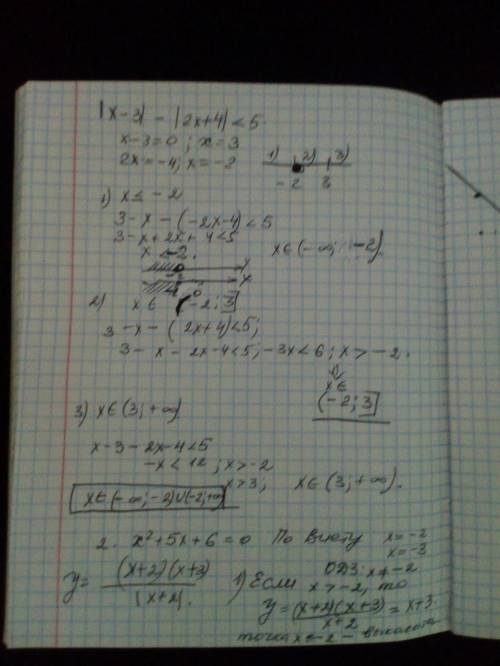 |x-3| - |2x+4| < 5
x-3=0 ; x=3
2x=-4, x=-2
1) 2) 3)
-2 3
1) x ≤ -2
3-x-(-2x-4) < 5
3-x+2x+4<5
x < -2. x∈(-∞; -2).
2) x ∈ (-2; 3]
3-x-(2x+4)<5;
3-x-2x-4<5, -3x<6; x>-2.
x∈
(-2; 3]
3) x∈(3; +∞)
x-3-2x-4<5
-x<12; x>-2
x>3, x∈(3; +∞).
x∈(-∞; -2)∪(-2; +∞)
2. x²+5x+6=0 По Виету x=-2
x=-3
ОДЗ: x≠-2
y= (x+2)(x+3) / |x+2|. 1) Если x>-2, то
y= (x+2)(x+3) / x+2 = x+3.
точка x=-2 -